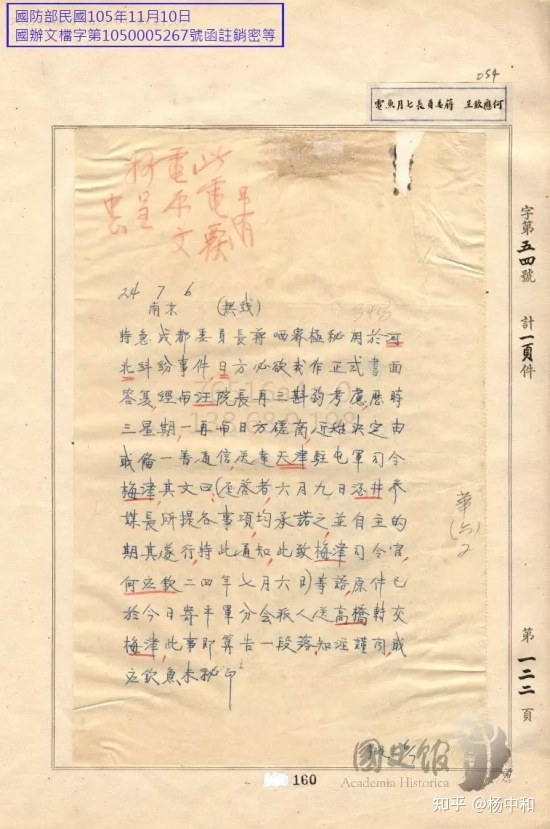 國防部民國105年11月10日
國辦文檔字第1050005267號函註銷密等
054
何應欽呈 蔣委員長七月魚電
此電
電原文
抄呈
24 7 6
南京 (無線)
特急成都委員長蔣 密極秘關於河
北糾紛事件,日方必欲我作正式書面
答复,經與汪院長再三斟酌考慮,歷時
三星期,一再與日方磋商,近始決定由
職備一普通信,送達天津駐屯軍司令
梅津,其文曰,(逕啓者,六月九日酒井參
謀長所提各事項,均承諾之,並自主的
期其遂行,特此通知,此致梅津司令官,
何应欽二四年七月六日)等語,原件已
於今日寄平軍分会派人送高橋轉交
梅津,此事即算告一段落,知注謹聞,職
应欽魚未秘印
字第五四號 計一頁件
第一二二頁
160
國史館
Academia Historica
知乎 @杨中和